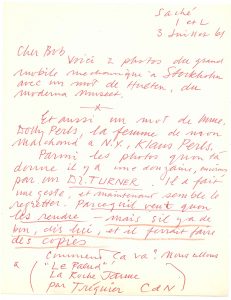 Saché
I et L
3 Juillet 61
Cher Bob
Voici 2 photos du grand
mobile mechanique à Stockholm
avec un mot de Hulten, du
moderna museet.
Et aussi un mot de Mme.
Dolly Perls, la femme de mon
marchand à N.Y., Klaus Perls.
Parmi les photos qu'on t'a
donné il y a une dou
par un Dr TURNER. Il a fait
une geste, et maintenant semble le
regretter. Parcequ'il veut qu'on
les rendre — mais s'il y a de
bon, dis lui, et il ferait faire
des copies
Comment ça va? Nous allons
à "Le Palud"
La Roche Jaune
par Tréguier CdN